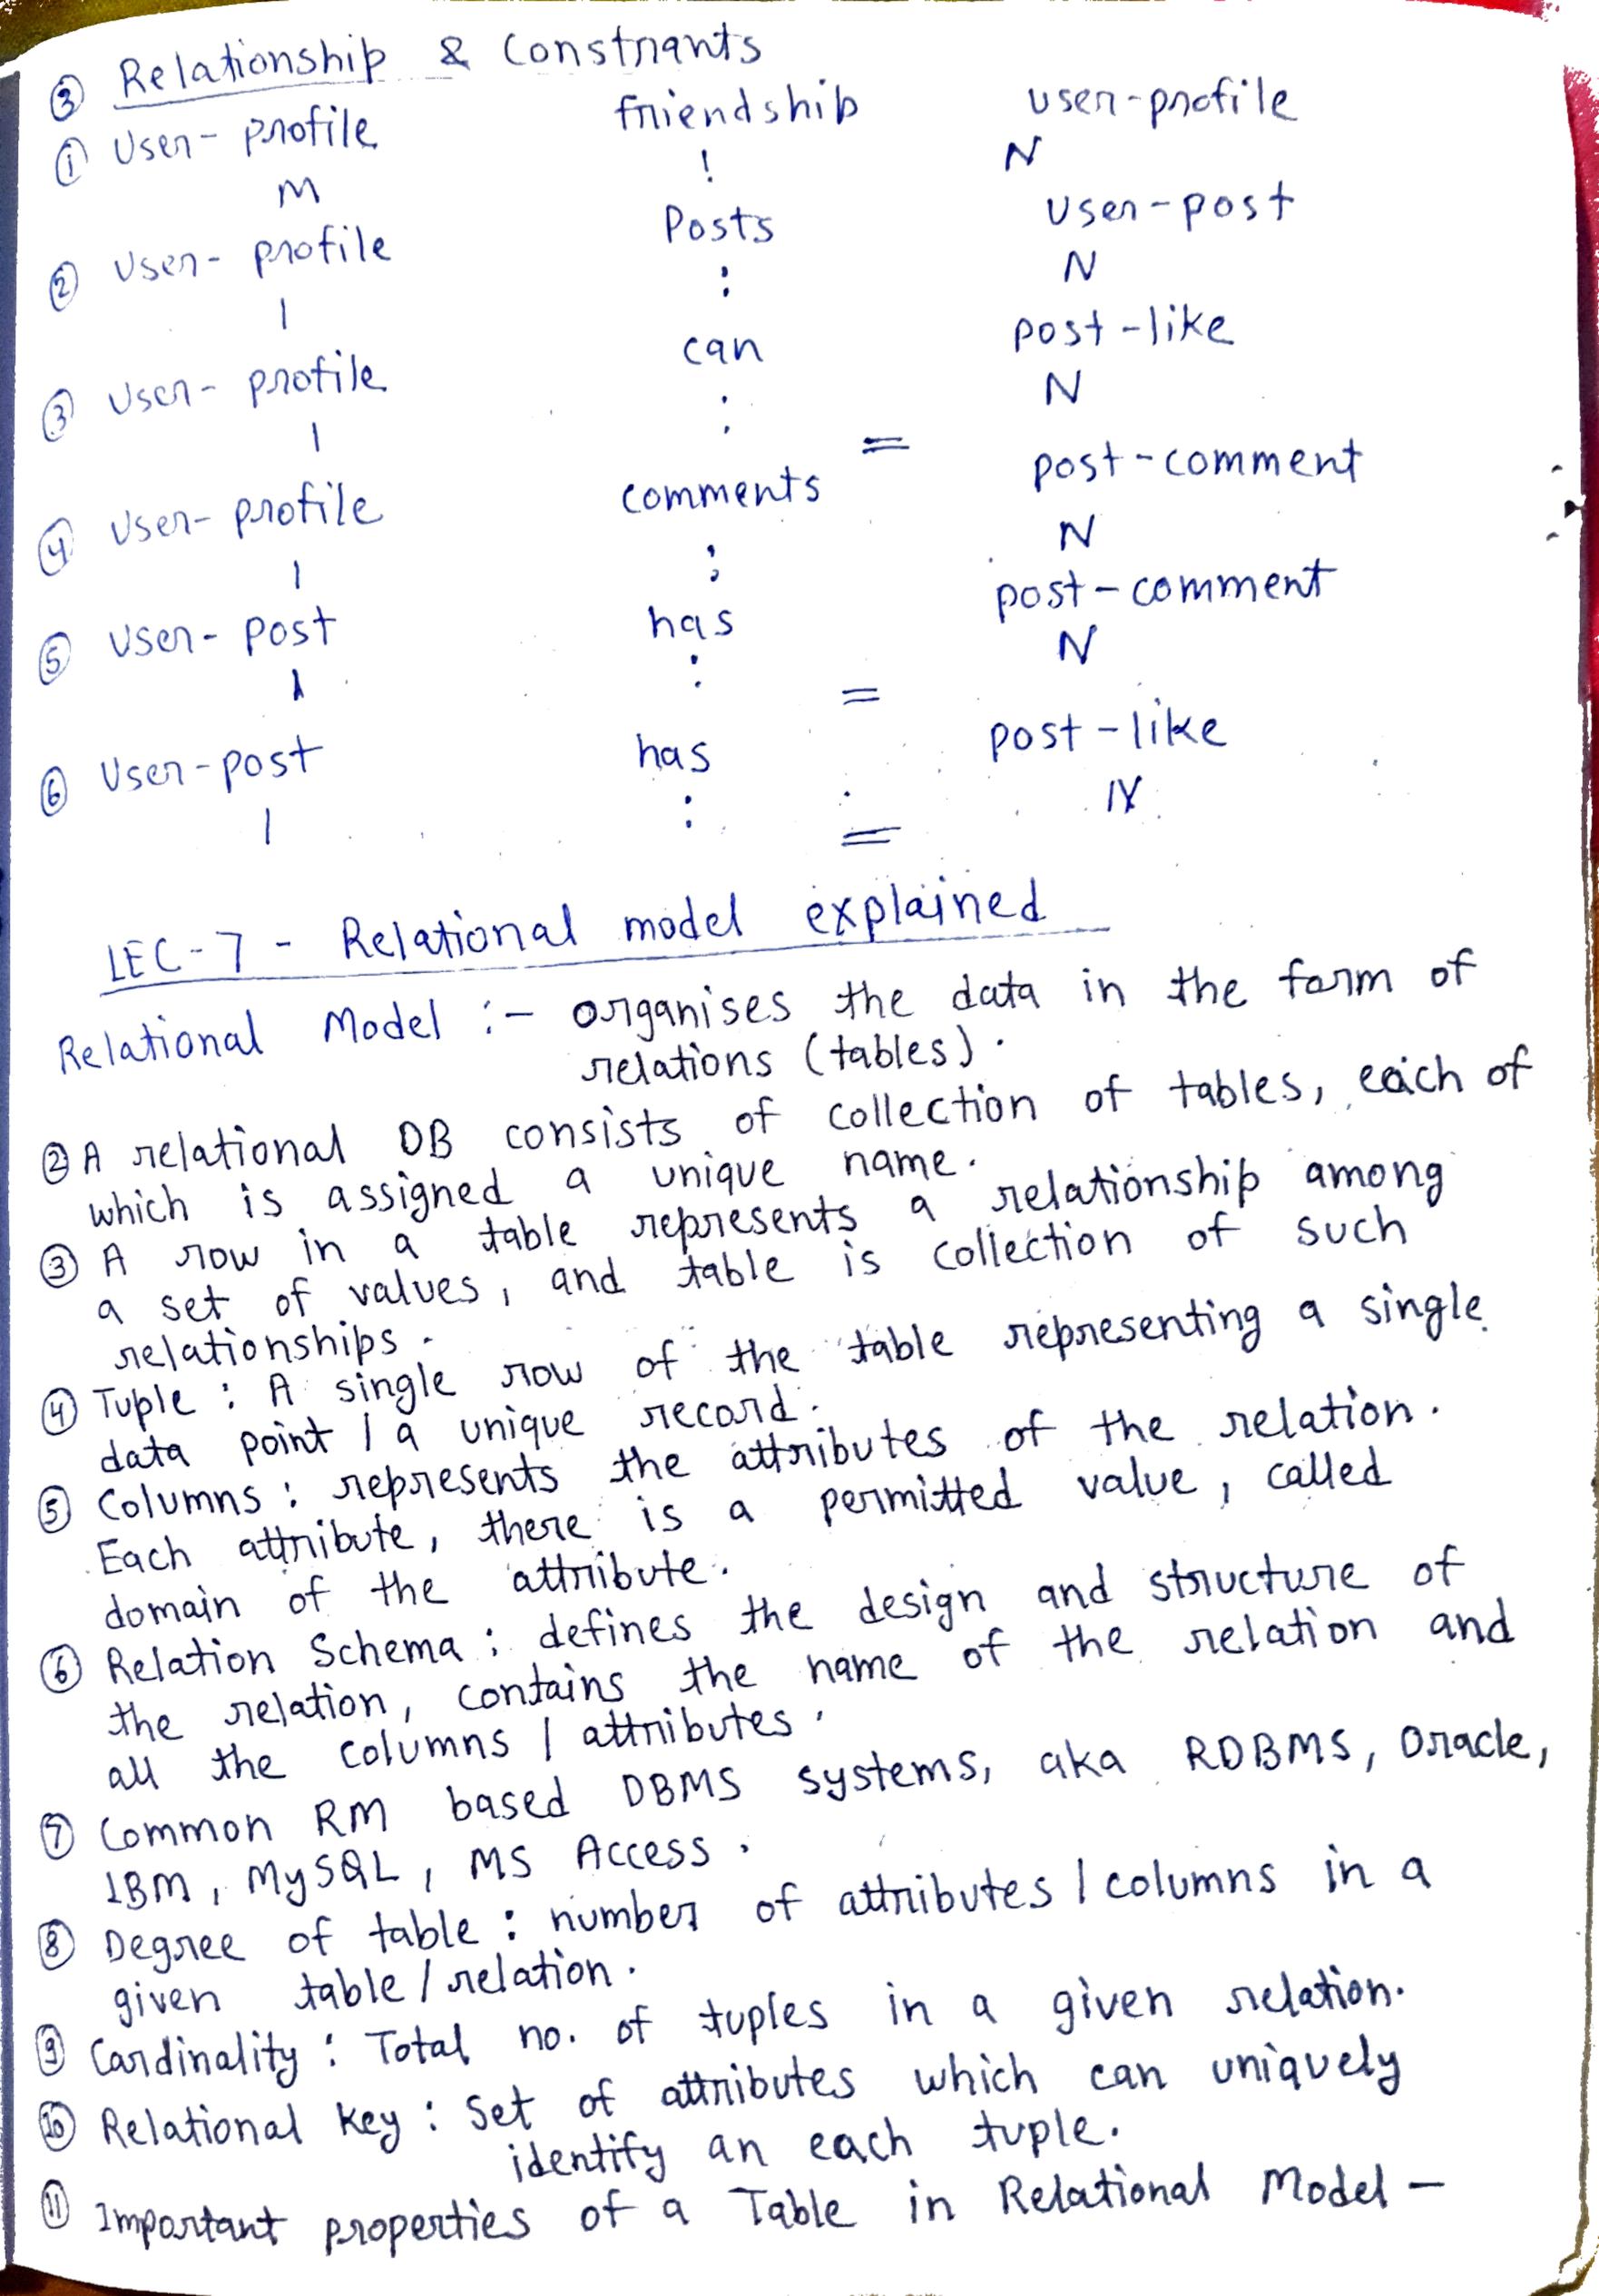 ③ Relationship & Constraints
① User-profile friendship user-profile
M : N
② User-profile Posts user-post
1 : N
③ User-profile can post-like
1 : N
④ User-profile comments = post-comment
1 : N
⑤ User-post has post-comment
1 : = N
⑥ User-post has post-like
1 : = N
LEC-7 - Relational model explained
Relational Model :- organises the data in the form of
relations (tables).
② A relational DB consists of collection of tables, each of
which is assigned a unique name.
③ A row in a table represents a relationship among
a set of values, and table is collection of such
relationships.
④ Tuple : A single row of the table representing a single
data point / a unique record.
⑤ Columns : represents the attributes of the relation.
Each attribute, there is a permitted value, called
domain of the attribute.
⑥ Relation Schema : defines the design and structure of
the relation, contains the name of the relation and
all the columns / attributes.
⑦ Common RM based DBMS systems, aka RDBMS, Oracle,
IBM, MySQL, MS Access.
⑧ Degree of table : number of attributes / columns in a
given table / relation.
⑨ Cardinality : Total no. of tuples in a given relation.
⑩ Relational Key : Set of attributes which can uniquely
identify an each tuple.
⑪ Important properties of a Table in Relational Model -